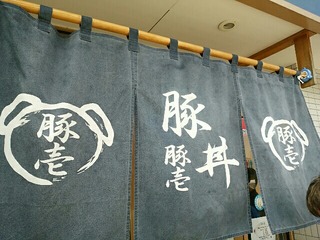 豚壱
豚丼
豚壱
豚壱